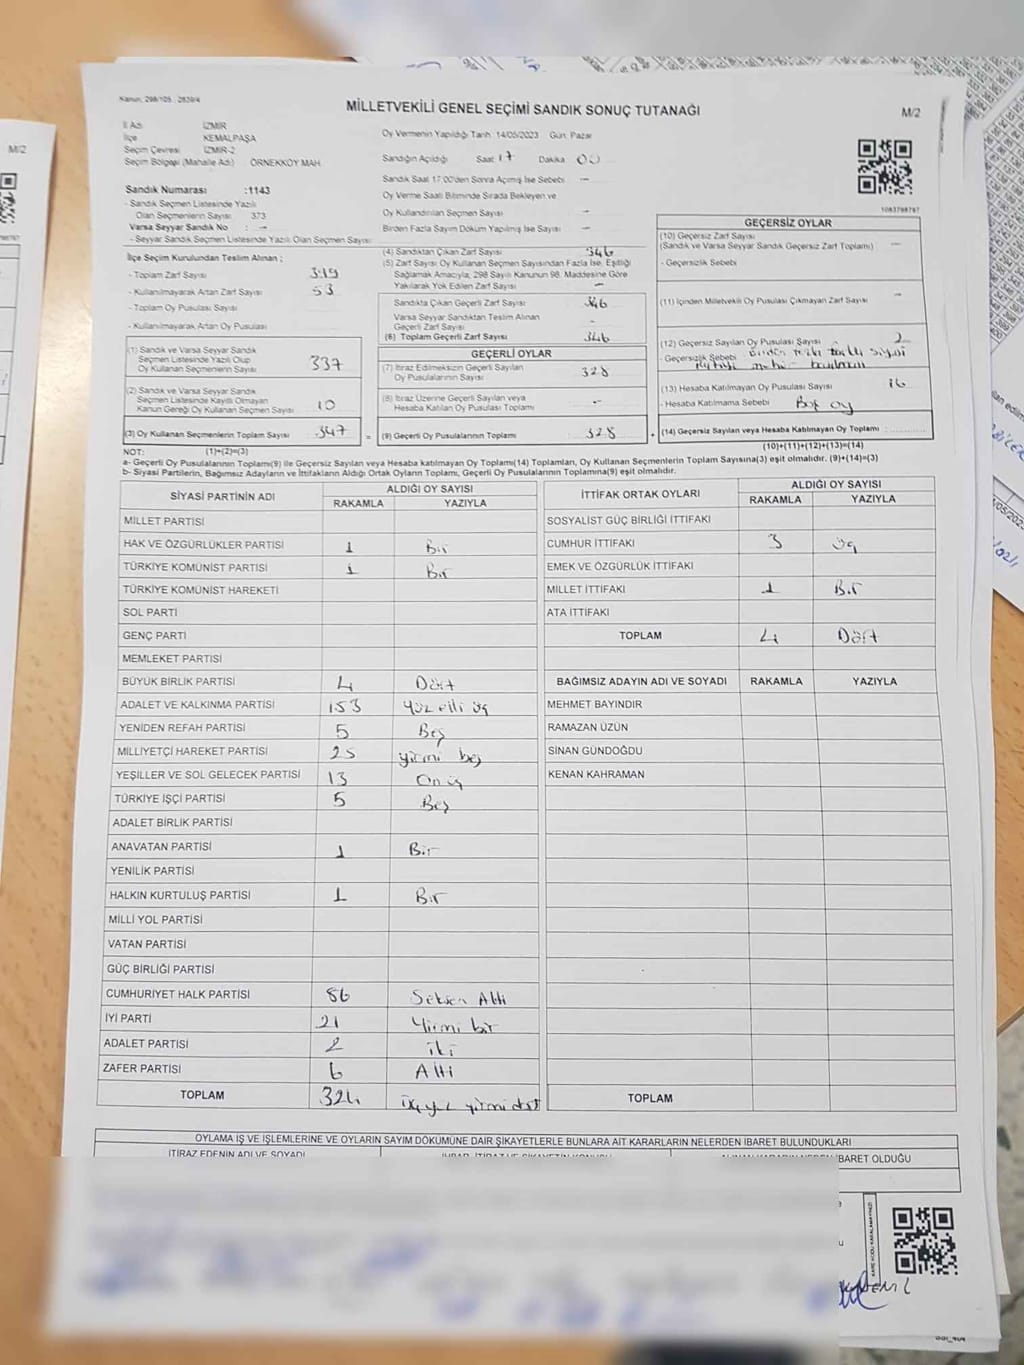 Kanun; 298/105 , 2839/4
MİLLETVEKİLİ GENEL SEÇİMİ SANDIK SONUÇ TUTANAĞI
M/2
M/2
İl Adı İZMİR
İlçe KEMALPAŞA
Seçim Çevresi İZMİR-2
Seçim Bölgesi (Mahalle Adı) ÖRNEKKÖY MAH.
Oy Vermenin Yapıldığı Tarih :14/05/2023 Gün: Pazar
Sandığın Açıldığı Saat 17 Dakika 00
Sandık Saat 17:00'den Sonra Açılmış İse Sebebi –
Oy Verme Saati Bitiminde Sırada Bekleyen ve
Oy Kullandırılan Seçmen Sayısı –
Birden Fazla Sayım Döküm Yapılmış İse Sayısı –
Sandık Numarası :1143
- Sandık Seçmen Listesinde Yazılı
Olan Seçmenlerin Sayısı 373
Varsa Seyyar Sandık No : –
- Seyyar Sandık Seçmen Listesinde Yazılı Olan Seçmen Sayısı
İlçe Seçim Kurulundan Teslim Alınan ;
- Toplam Zarf Sayısı
- Kullanılmayarak Artan Zarf Sayısı 53
- Toplam Oy Pusulası Sayısı
- Kullanılmayarak Artan Oy Pusulası
(1) Sandık ve Varsa Seyyar Sandık
Seçmen Listesinde Yazılı Olup
Oy Kullanan Seçmenlerin Sayısı 337
(2) Sandık ve Varsa Seyyar Sandık
Seçmen Listesinde Kayıtlı Olmayan
Kanun Gereği Oy Kullanan Seçmen Sayısı 10
(3) Oy Kullanan Seçmenlerin Toplam Sayısı 347 =
(4) Sandıktan Çıkan Zarf Sayısı 346
(5) Zarf Sayısı Oy Kullanan Seçmen Sayısından Fazla İse, Eşitliği
Sağlamak Amacıyla, 298 Sayılı Kanunun 98. Maddesine Göre
Yakılarak Yok Edilen Zarf Sayısı –
Sandıkta Çıkan Geçerli Zarf Sayısı 346
Varsa Seyyar Sandıktan Teslim Alınan
Geçerli Zarf Sayısı –
(6) Toplam Geçerli Zarf Sayısı 346
GEÇERLİ OYLAR
(7) İtiraz Edilmeksizin Geçerli Sayılan
Oy Pusulalarının Sayısı 328
(8) İtiraz Üzerine Geçerli Sayılan veya
Hesaba Katılan Oy Pusulası Toplamı –
(9) Geçerli Oy Pusulalarının Toplamı 328 +
1083798797
GEÇERSİZ OYLAR
(10) Geçersiz Zarf Sayısı
(Sandık ve Varsa Seyyar Sandık Geçersiz Zarf Toplamı) –
- Geçersizlik Sebebi
(11) İçinden Milletvekili Oy Pusulası Çıkmayan Zarf Sayısı –
(12) Geçersiz Sayılan Oy Pusulası Sayısı 2
- Geçersizlik Sebebi
(13) Hesaba Katılmayan Oy Pusulası Sayısı 16
- Hesaba Katılmama Sebebi Boş oy
(14) Geçersiz Sayılan veya Hesaba Katılmayan Oy Toplamı :
NOT: (1)+(2)=(3) (10)+(11)+(12)+(13)=(14)
a- Geçerli Oy Pusulalarının Toplamı(9) ile Geçersiz Sayılan veya Hesaba katılmayan Oy Toplamı(14) Toplamları, Oy Kullanan Seçmenlerin Toplam Sayısına(3) eşit olmalıdır. (9)+(14)=(3)
b- Siyasi Partilerin, Bağımsız Adayların ve İttifakların Aldığı Ortak Oyların Toplamı, Geçerli Oy Pusulalarının Toplamına(9) eşit olmalıdır.
SİYASİ PARTİNİN ADI ALDIĞI OY SAYISI
RAKAMLA YAZIYLA
MİLLET PARTİSİ
HAK VE ÖZGÜRLÜKLER PARTİSİ 1 Bir
TÜRKİYE KOMÜNİST PARTİSİ 1 Bir
TÜRKİYE KOMÜNİST HAREKETİ
SOL PARTİ
GENÇ PARTİ
MEMLEKET PARTİSİ
BÜYÜK BİRLİK PARTİSİ 4 Dört
ADALET VE KALKINMA PARTİSİ 153 Yüz elli üç
YENİDEN REFAH PARTİSİ 5 Beş
MİLLİYETÇİ HAREKET PARTİSİ 25 yirmi beş
YEŞİLLER VE SOL GELECEK PARTİSİ 13 On üç
TÜRKİYE İŞÇİ PARTİSİ 5 Beş
ADALET BİRLİK PARTİSİ
ANAVATAN PARTİSİ 1 Bir
YENİLİK PARTİSİ
HALKIN KURTULUŞ PARTİSİ 1 Bir
MİLLİ YOL PARTİSİ
VATAN PARTİSİ
GÜÇ BİRLİĞİ PARTİSİ
CUMHURİYET HALK PARTİSİ 86 Seksen Altı
İYİ PARTİ 21 Yirmi bir
ADALET PARTİSİ 2 iki
ZAFER PARTİSİ 6 Altı
TOPLAM 324 üçyüz yirmi dört
İTTİFAK ORTAK OYLARI ALDIĞI OY SAYISI
RAKAMLA YAZIYLA
SOSYALİST GÜÇ BİRLİĞİ İTTİFAKI
CUMHUR İTTİFAKI 3 üç
EMEK VE ÖZGÜRLÜK İTTİFAKI
MİLLET İTTİFAKI 1 Bir
ATA İTTİFAKI
TOPLAM 4 Dört
BAĞIMSIZ ADAYIN ADI VE SOYADI RAKAMLA YAZIYLA
MEHMET BAYINDIR
RAMAZAN ÜZÜN
SİNAN GÜNDOĞDU
KENAN KAHRAMAN
TOPLAM
OYLAMA İŞ VE İŞLEMLERİNE VE OYLARIN SAYIM DÖKÜMÜNE DAİR ŞİKAYETLERLE BUNLARA AİT KARARLARIN NELERDEN İBARET BULUNDUKLARI
İTİRAZ EDENİN ADI VE SOYADI
İBARET OLDUĞU